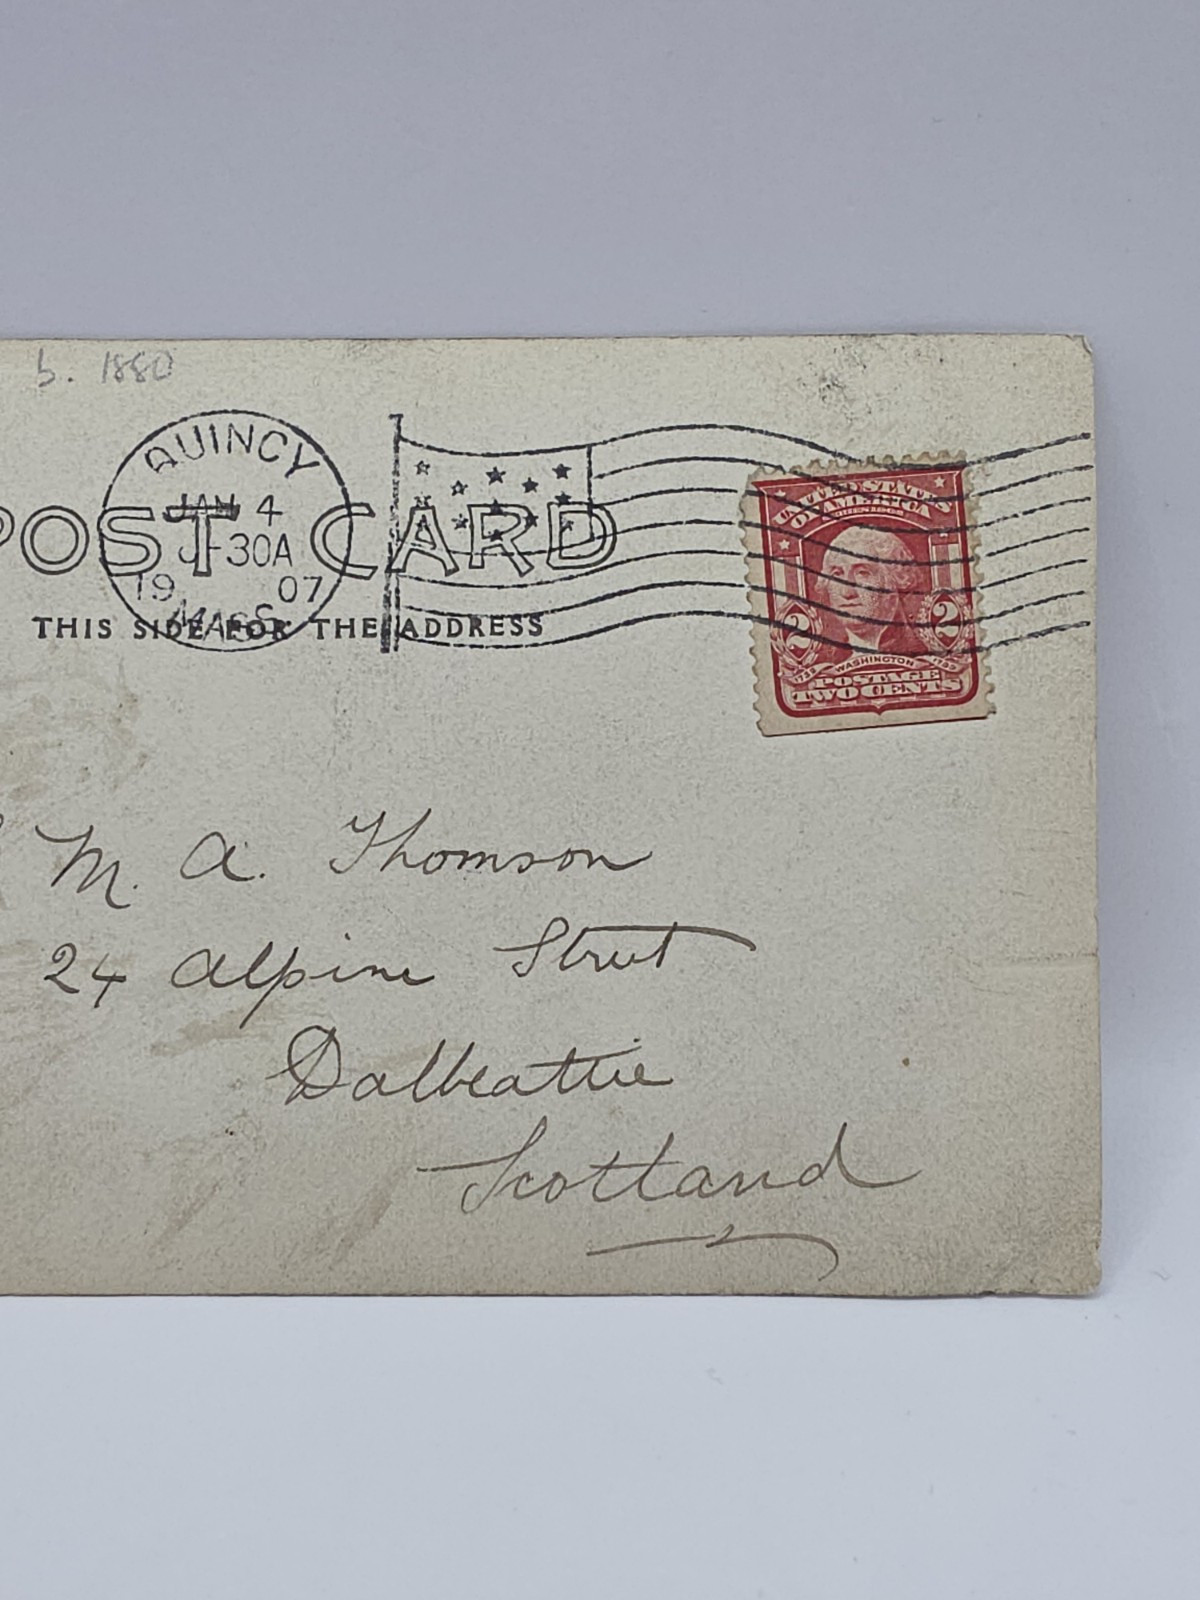 b. 1880
QUINCY
JAN 4
-30A
19 07
MASS.
POST CARD
THIS SIDE FOR THE ADDRESS
UNITED STATES
OF AMERICA
SERIES 1902
2 2
1732 WASHINGTON 1799
POSTAGE
TWO CENTS
M. A. Thomson
24 Alpine Street
Dalbeattie
Scotland